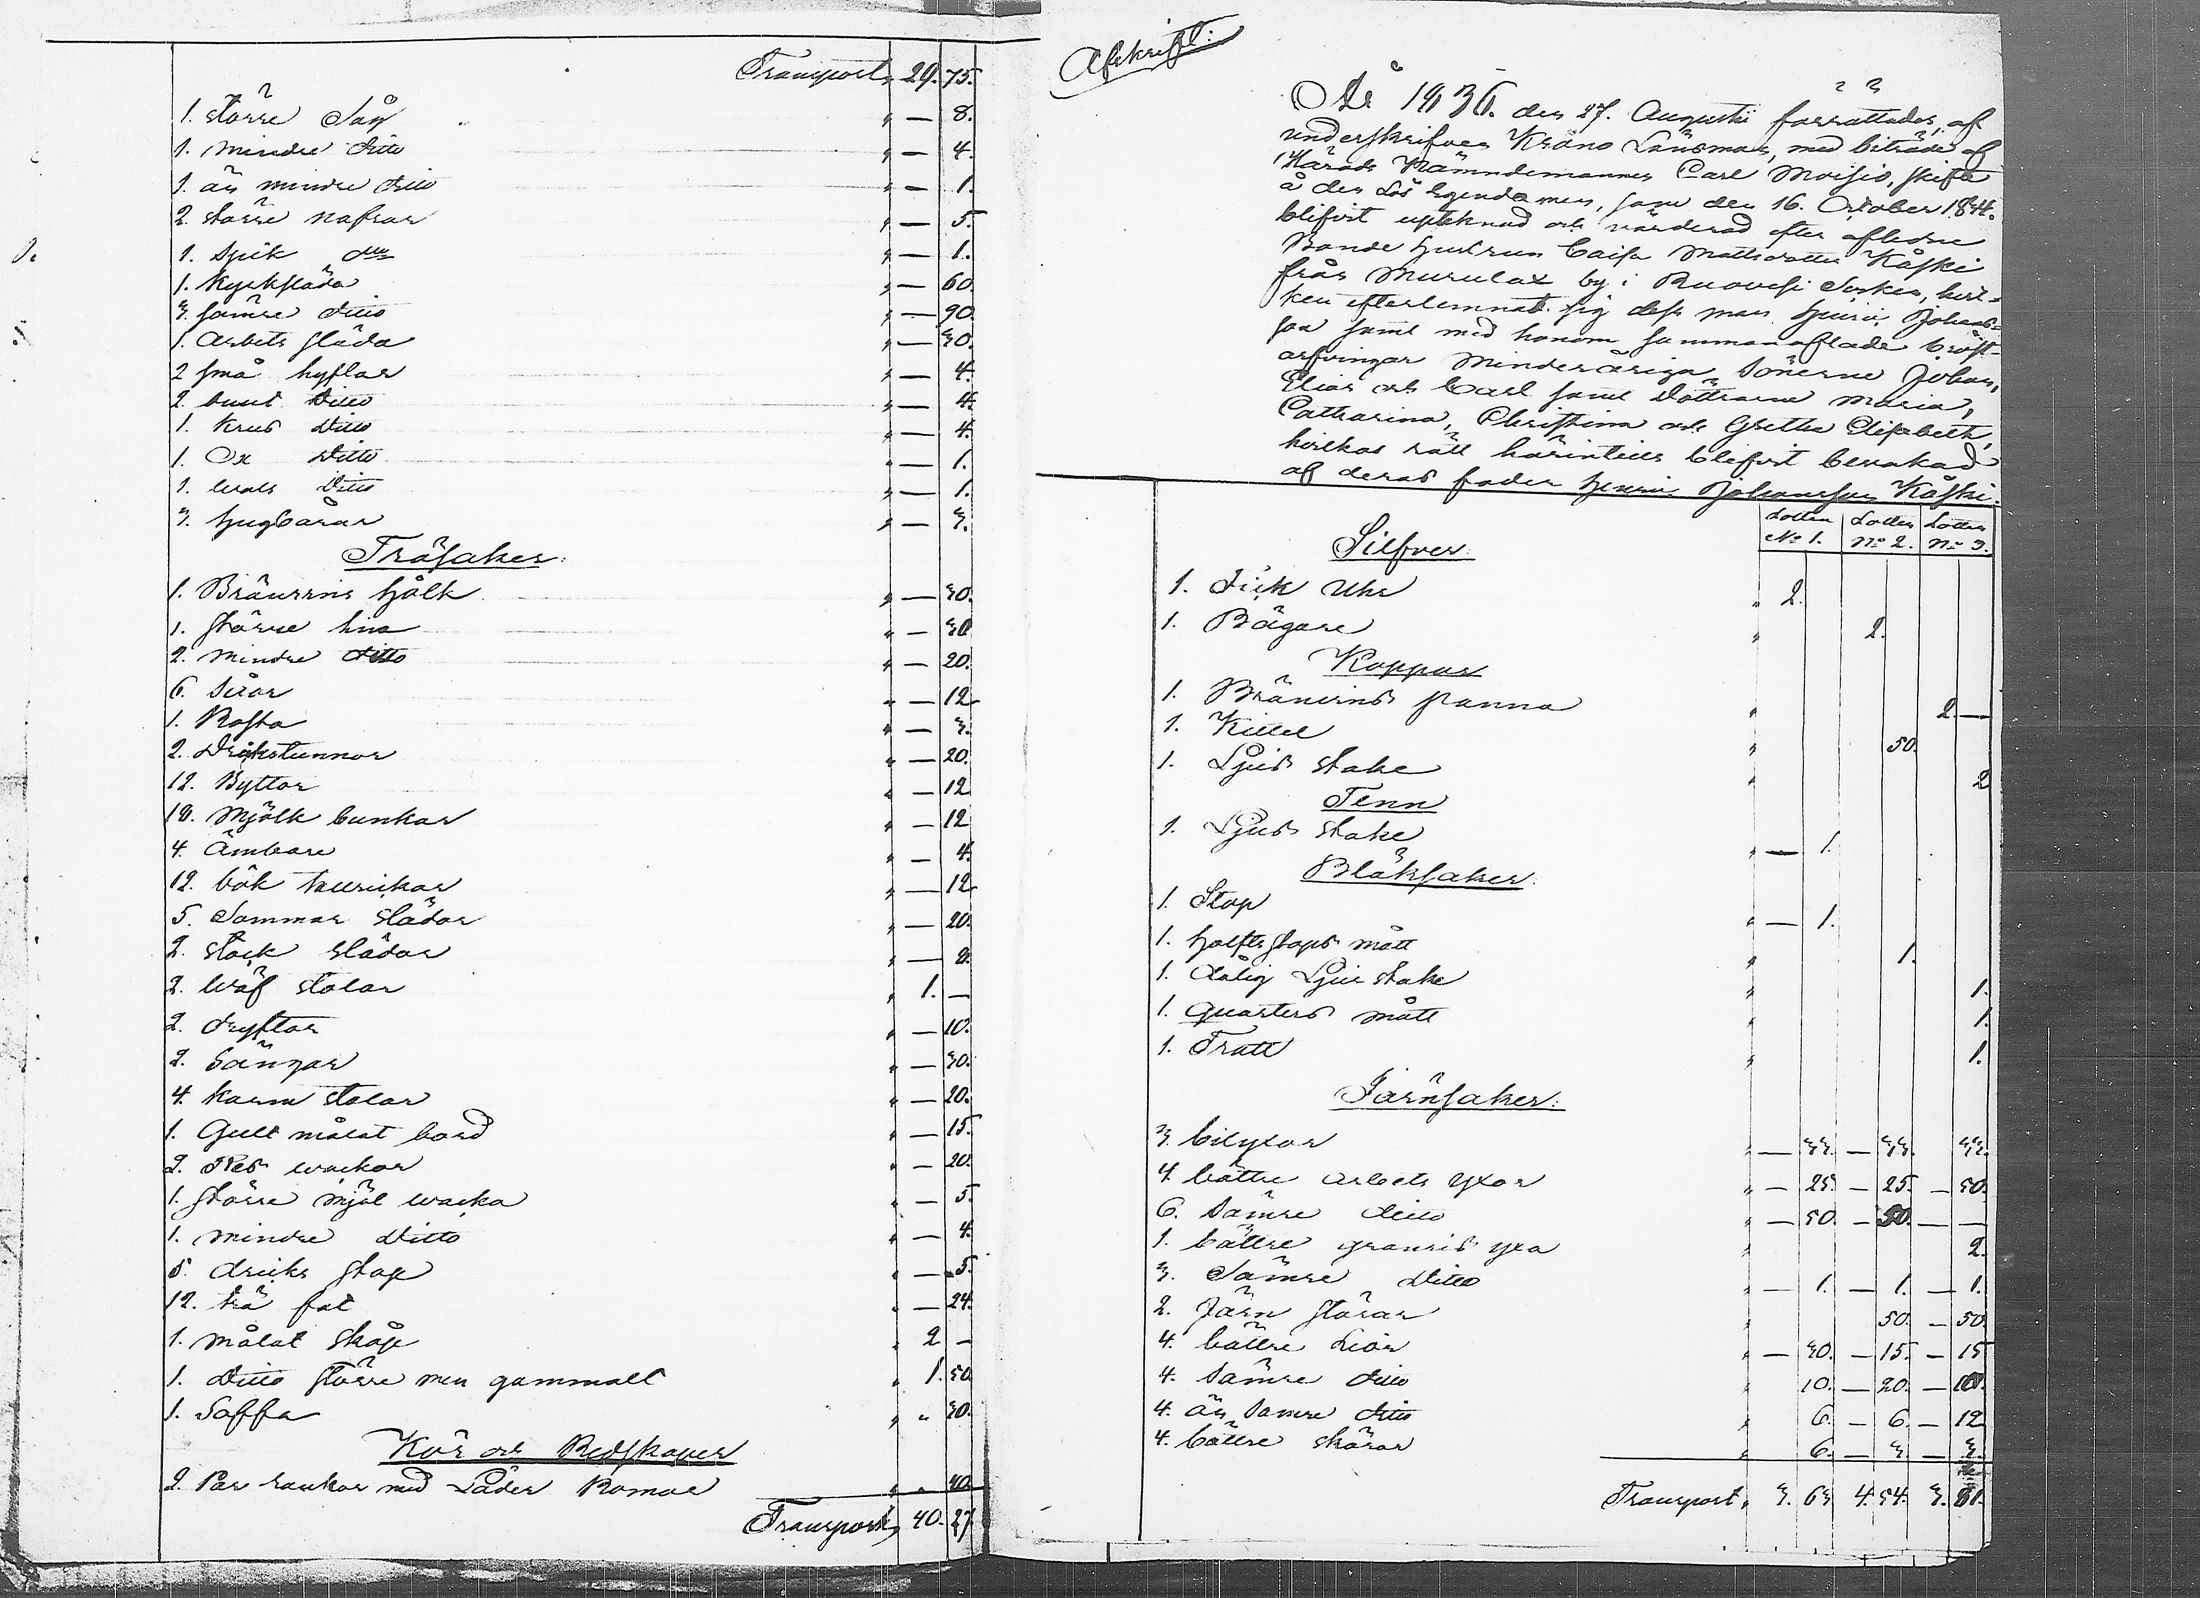 Transport, 29. 75.
1. större Såg " — 8.
1. mindre ditto " — 4.
1. än mindre ditto " — 1.
2. större nafrar " — 5.
1. Spik d:o " — 1.
1. Kyrksläda " — 60.
3. sämre ditto " — 90.
1. Arbets släda " — 30.
2 små hyflar " — 4.
2. bunt Ditto " — 4.
1. Krus Ditto " — 4.
1. Ox Ditto " — 1.
1. Ditto " — 1.
3. hugbårar " — 3.
Träsaker:
1. Bränvins hjälk " — 30.
1. större " — 30
2. mindre ditto " — 20.
6. Såar " — 12
1. Rosta " — 3.
2. Drickstunnor " — 20.
12. Byttor " — 12
18. Mjölk bunkar " — 12
4. Ämbare " — 4.
12. bök " — 12
5. Sommar slädar " — 20.
2. stock slädar " — 8.
2. Wäf stolar " 1. —
2. dryftar " — 10.
2. Sängar " — 30.
4. karm stolar " — 20.
1. Gult målat bord " — 15.
2. wackor " — 20.
1. större mjöl wacka " — 5.
1. mindre Ditto " — 4.
5. dricks stop " — 5.
12. trä fat " — 24.
1. målat skåp " 2 —
1. Ditto större men gammalt " 1. 50
1. Soffa " " 30.
Kör och Redskaper
2. Par rankor med Läder Romor " " 40.
Transport, 40. 27
Afskrift:
År 1836. den 27. Augusti förrättades, af
underskrifven Krono Länsman, med biträde af
Härads Nämndemannen Carl Moisio, skifte
å den Lös Egendomen, som den 16. October 1834.
blifvit uptecknad och värderad efter aflidne
Bonde hustrun Caisa Mattsdotter Kåski
från Murulax by i Ruovesi Socken, hvil-
ken efterlemnat sig dess man Henric Johans-
son samt med honom sammanaflade bröst-
arfvingar minderåriga Sönerne Johan,
Elias och Carl samt Döttrarne Maria,
Catharina, Christina och Gretha Elisabeth,
hvilkas rätt härintill blifvit bevakad
af deras fader Henric Johansson Kåski.
Lotten No 1. Lotten No 2. Lotten No 3.
Silfver:
1. Fick Uhr " 2.
1. Bägare " 2.
Koppar
1. Bränvins panna " 2. —
1. Kittel " 50.
1. Ljus stake " 2
Tenn
1. Ljus stake " — 1.
Bläksaker:
1. Stop " — 1.
1. halfts stops mått " 1.
1. dålig Ljus stake " 1.
1. quarters mått " 1.
1. Tratt " 1.
Järnsaker:
3. bilyxor " — 33. — 33. 33.
4. bättre arbets yxor " — 25. — 25. — 50.
6. Sämre ditto " — 50. — 50. — —
1. bättre granris yxa " 2.
3. Sämre Ditto " — 1. — 1. — 1.
2. Järn störar " 50. — 50.
4. bättre Liar " — 30. — 15. — 15
4. sämre ditto " 10. — 20. — 10.
4. än sämre ditto " 6. — 6. — 12
4. bättre skäror " 6. — 3. — 3.
Transport, 3. 63 4. 54. 3. 81.